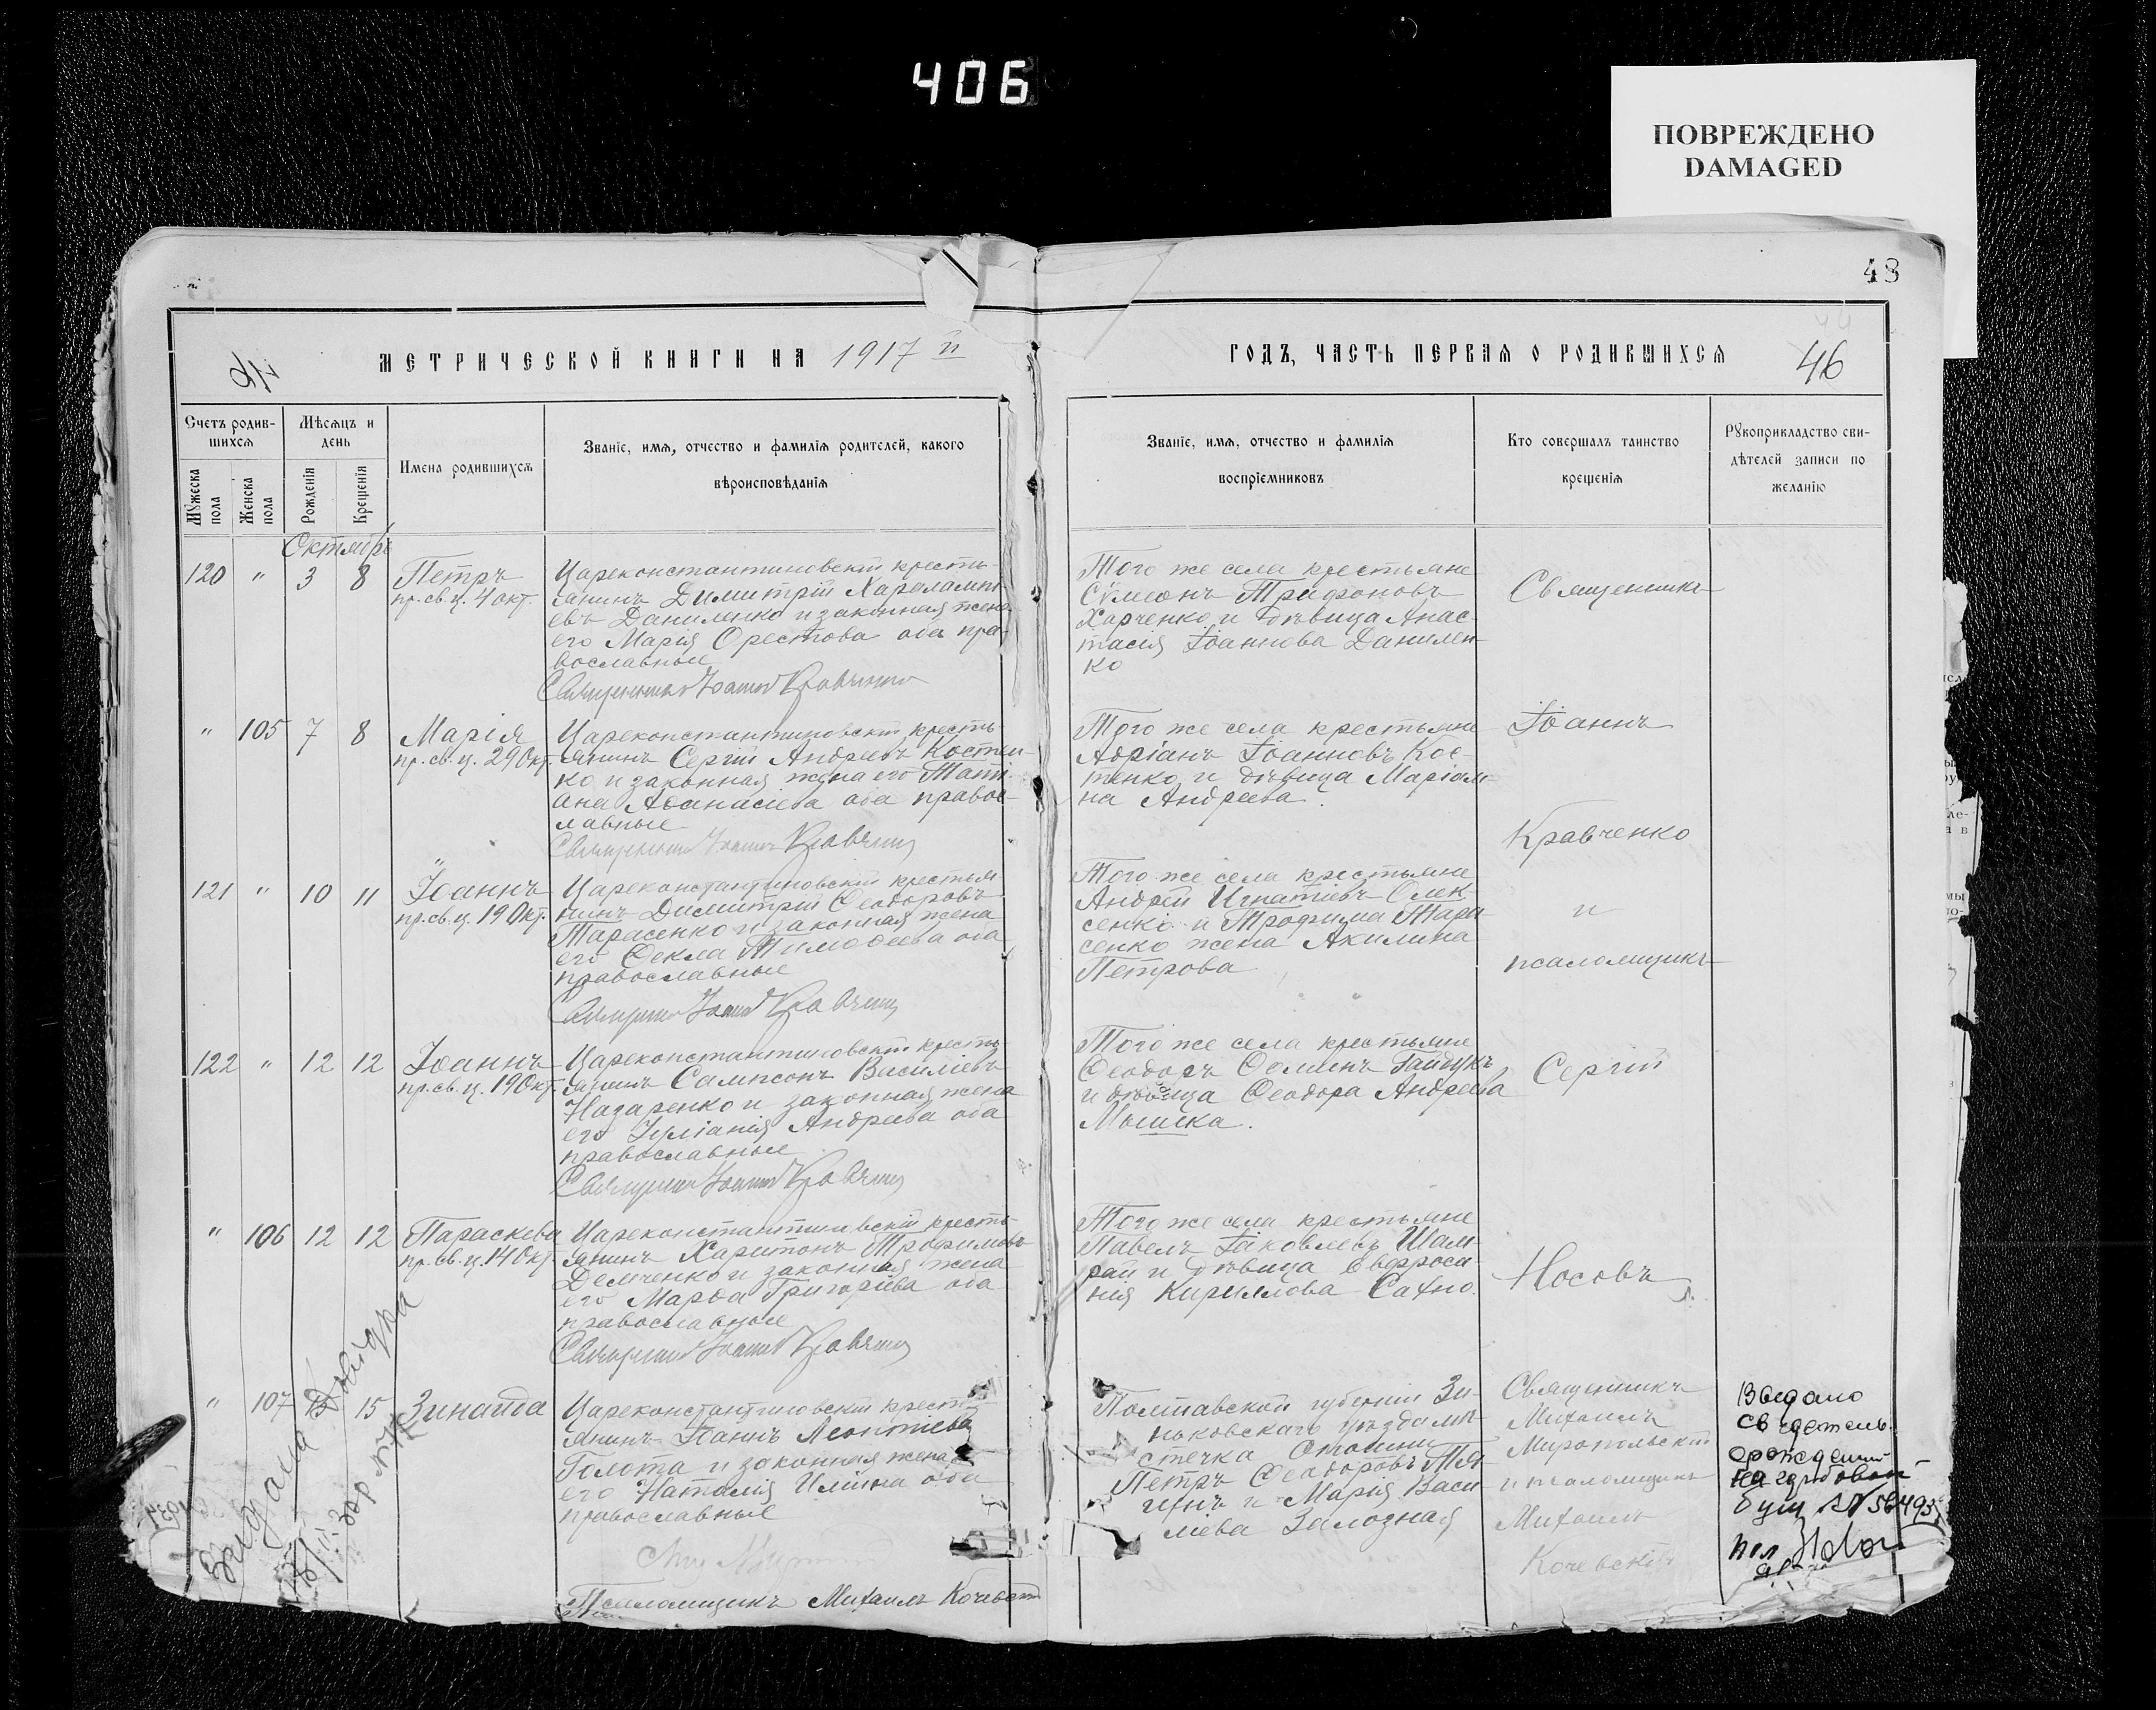 406
ПОВРЕЖДЕНО
DAMAGED
48
МЕТРИЧЕСКОЙ КНИГИ НА 1917 й
ГОДЪ, ЧАСТЬ ПЕРВАЯ О РОДИВШИХСЯ
46
Счетъ родив-
шихся
Мужеска пола
Женска пола
Мѣсяцъ и
день
Рожденія
Крещенія
Имена родившихся
Званіе, имя, отчество и фамилія родителей, какого
вѣроисповѣданія
Званіе, имя, отчество и фамилія
воспріемниковъ
Кто совершалъ таинство
крещенія
Рукоприкладство сви-
дѣтелей записи по
желанію
Октябрь
120 " 3 8 Петръ
пр. св. ц. 4 окт.
Цареконстантиновскій кресть-
янинъ Димитрій Харалампі-
евъ Даниленко и законная жена
его Марія Орестова оба пра-
вославные
Священникъ Іоаннъ Кравченко
Того же села крестьяне
Сѵмеонъ Трифоновъ
Харченко и дѣвица Анас-
тасія Іоаннова Данилен-
ко
Священникъ
" 105 7 8 Марія
пр. св. ц. 29 Окт.
Цареконстантиновскій кресть-
янинъ Сергій Андреевъ Костен-
ко и законная жена его Таті-
ана Аѳанасіева оба правос-
лавные
Священникъ Іоаннъ Кравченко
Того же села крестьяне
Адріанъ Іоанновъ Кос-
тенко и дѣвица Маріам-
на Андреева.
Іоаннъ
Кравченко
121 " 10 11 Іоаннъ
пр. св. ц. 19 Окт.
Цареконстантиновскій крестья-
нинъ Димитрій Ѳеодоровъ
Тарасенко и законная жена
его Ѳекла Тимоѳеева оба
православные
Священникъ Іоаннъ Кравченко
Того же села крестьяне
Андрей Игнатіевъ Олек-
сенко и Трофима Тара-
сенко жена Акилина
Петрова
и
псаломщикъ
122 " 12 12 Іоаннъ
пр. св. ц. 19 Окт.
Цареконстантиновскій кресть-
янинъ Сампсонъ Василіевъ
Назаренко и законная жена
его Іуліанія Андреева оба
православные
Священникъ Іоаннъ Кравченко
Того же села крестьяне
Ѳеодоръ Ѳоминъ Гайдукъ
и дѣвица Ѳеодора Андреева
Мышка.
Сергій
" 106 12 12 Параскева
пр. св. ц. 14 Окт.
Цареконстантиновскій кресть-
янинъ Харитонъ Трофимовъ
Демченко и законная жена
его Марѳа Григоріева оба
православные
Священникъ Іоаннъ Кравченко
Того же села крестьяне
Павелъ Іаковлевъ Шам-
рай и дѣвица Евфроси-
нія Кириллова Сахно.
Носовъ
" 107 15 Зинаида
Цареконстантиновскій кресть-
янинъ Іоаннъ Леонтіевъ
Голота и законная жена
его Наталія Иліина оба
православные
Псаломщикъ Михаилъ Кочевскій
Полтавской губерніи Зи-
ньковскаго уѣзда мѣ-
стечка
Петръ Ѳеодоровъ
и Марія Васи-
ліева Залозная
Священникъ
Михаилъ
Миропольскій
и псаломщикъ
Михаилъ
Кочевскій
Выдано
свидетель.
о рождении
на гербовой
бум №
Видана довідка